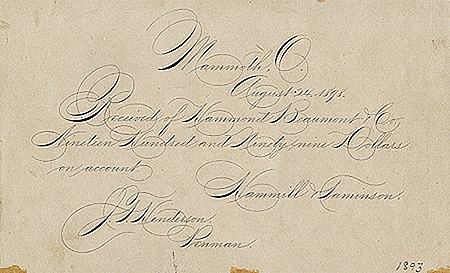 Mammoth, O.
August 24, 1893.
Received of Hammond Beaumont & Co,
Nineteen Hundred and Ninety nine Dollars
on account
Hammill & Taminson.
J T Henderson.
Penman.
1893